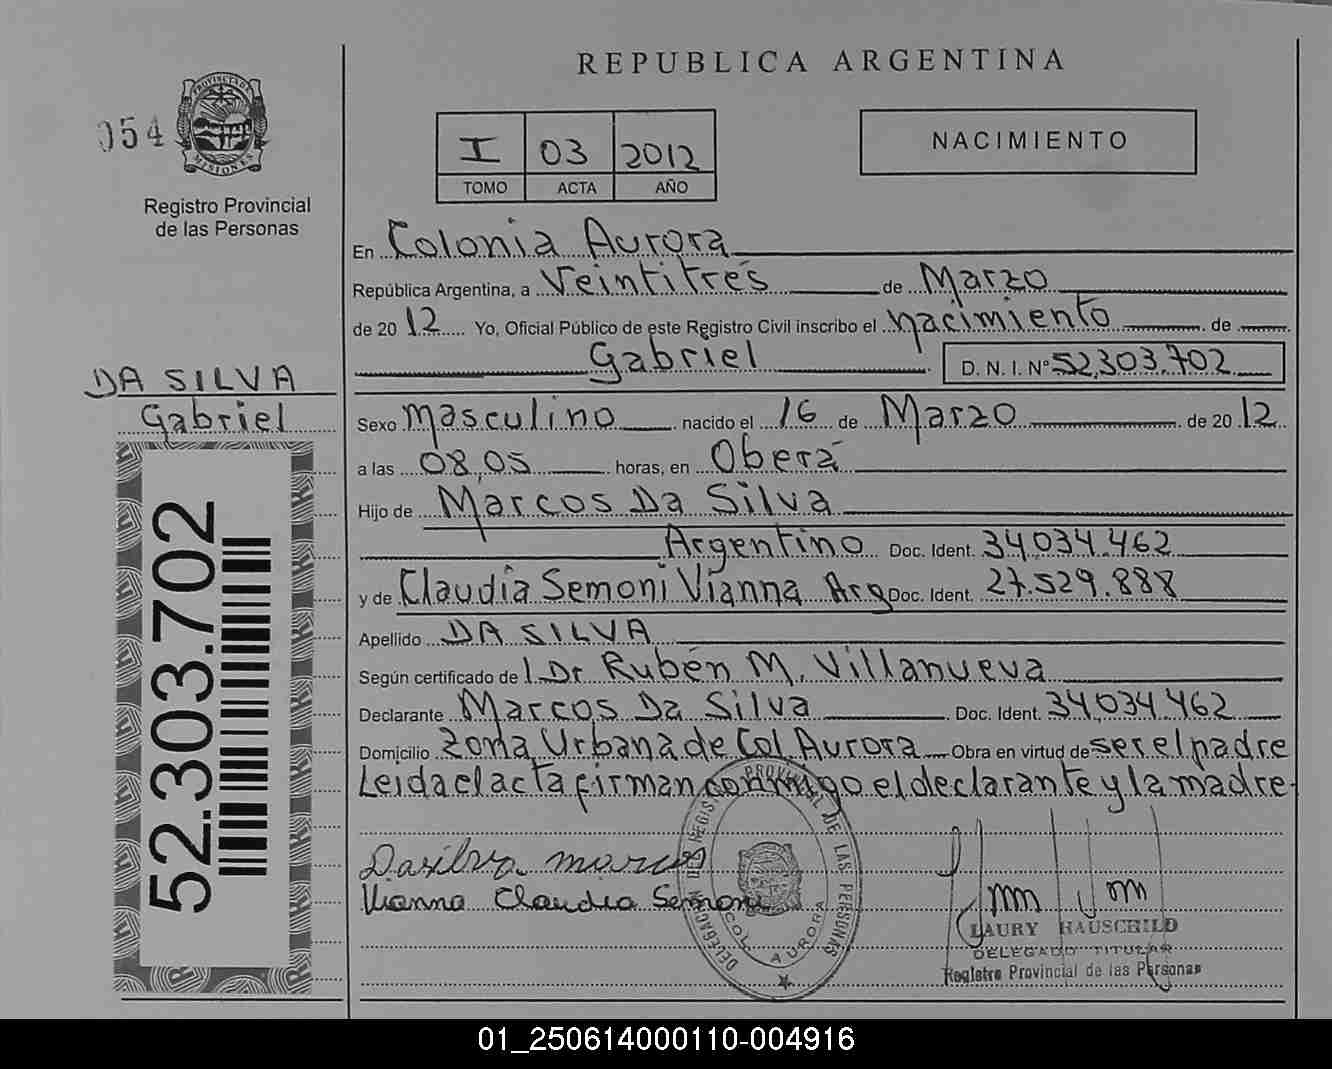 REPUBLICA ARGENTINA
054
PROVINCIA DE MISIONES
Registro Provincial
de las Personas
I 03 2012
TOMO ACTA AÑO
NACIMIENTO
En Colonia Aurora
República Argentina, a Veintitrés de Marzo
de 20 12 Yo, Oficial Público de este Registro Civil inscribo el nacimiento de
Gabriel D. N. I. Nº 52.303.702
DA SILVA
Gabriel
52.303.702
Sexo masculino nacido el 16 de Marzo de 20 12
a las 08,05 horas, en Oberá
Hijo de Marcos Da Silva
Argentino Doc. Ident. 34.034.462
y de Claudia Semoni Vianna Arg Doc. Ident. 27.529.888
Apellido DA SILVA
Según certificado de 1 Dr Rubén M. Villanueva
Declarante Marcos Da Silva Doc. Ident. 34.034.462
Domicilio Zona Urbana de Col. Aurora Obra en virtud de ser el padre
Leida el acta firman conmigo el declarante y la madre
Dasilva marcos
Vianna Claudia Semoni
DELEGACION DEL REGISTRO PROVINCIAL DE LAS PERSONAS
COL. AURORA
LAURY HAUSCHILD
DELEGADO TITULAR
Registro Provincial de las Personas
01_250614000110-004916